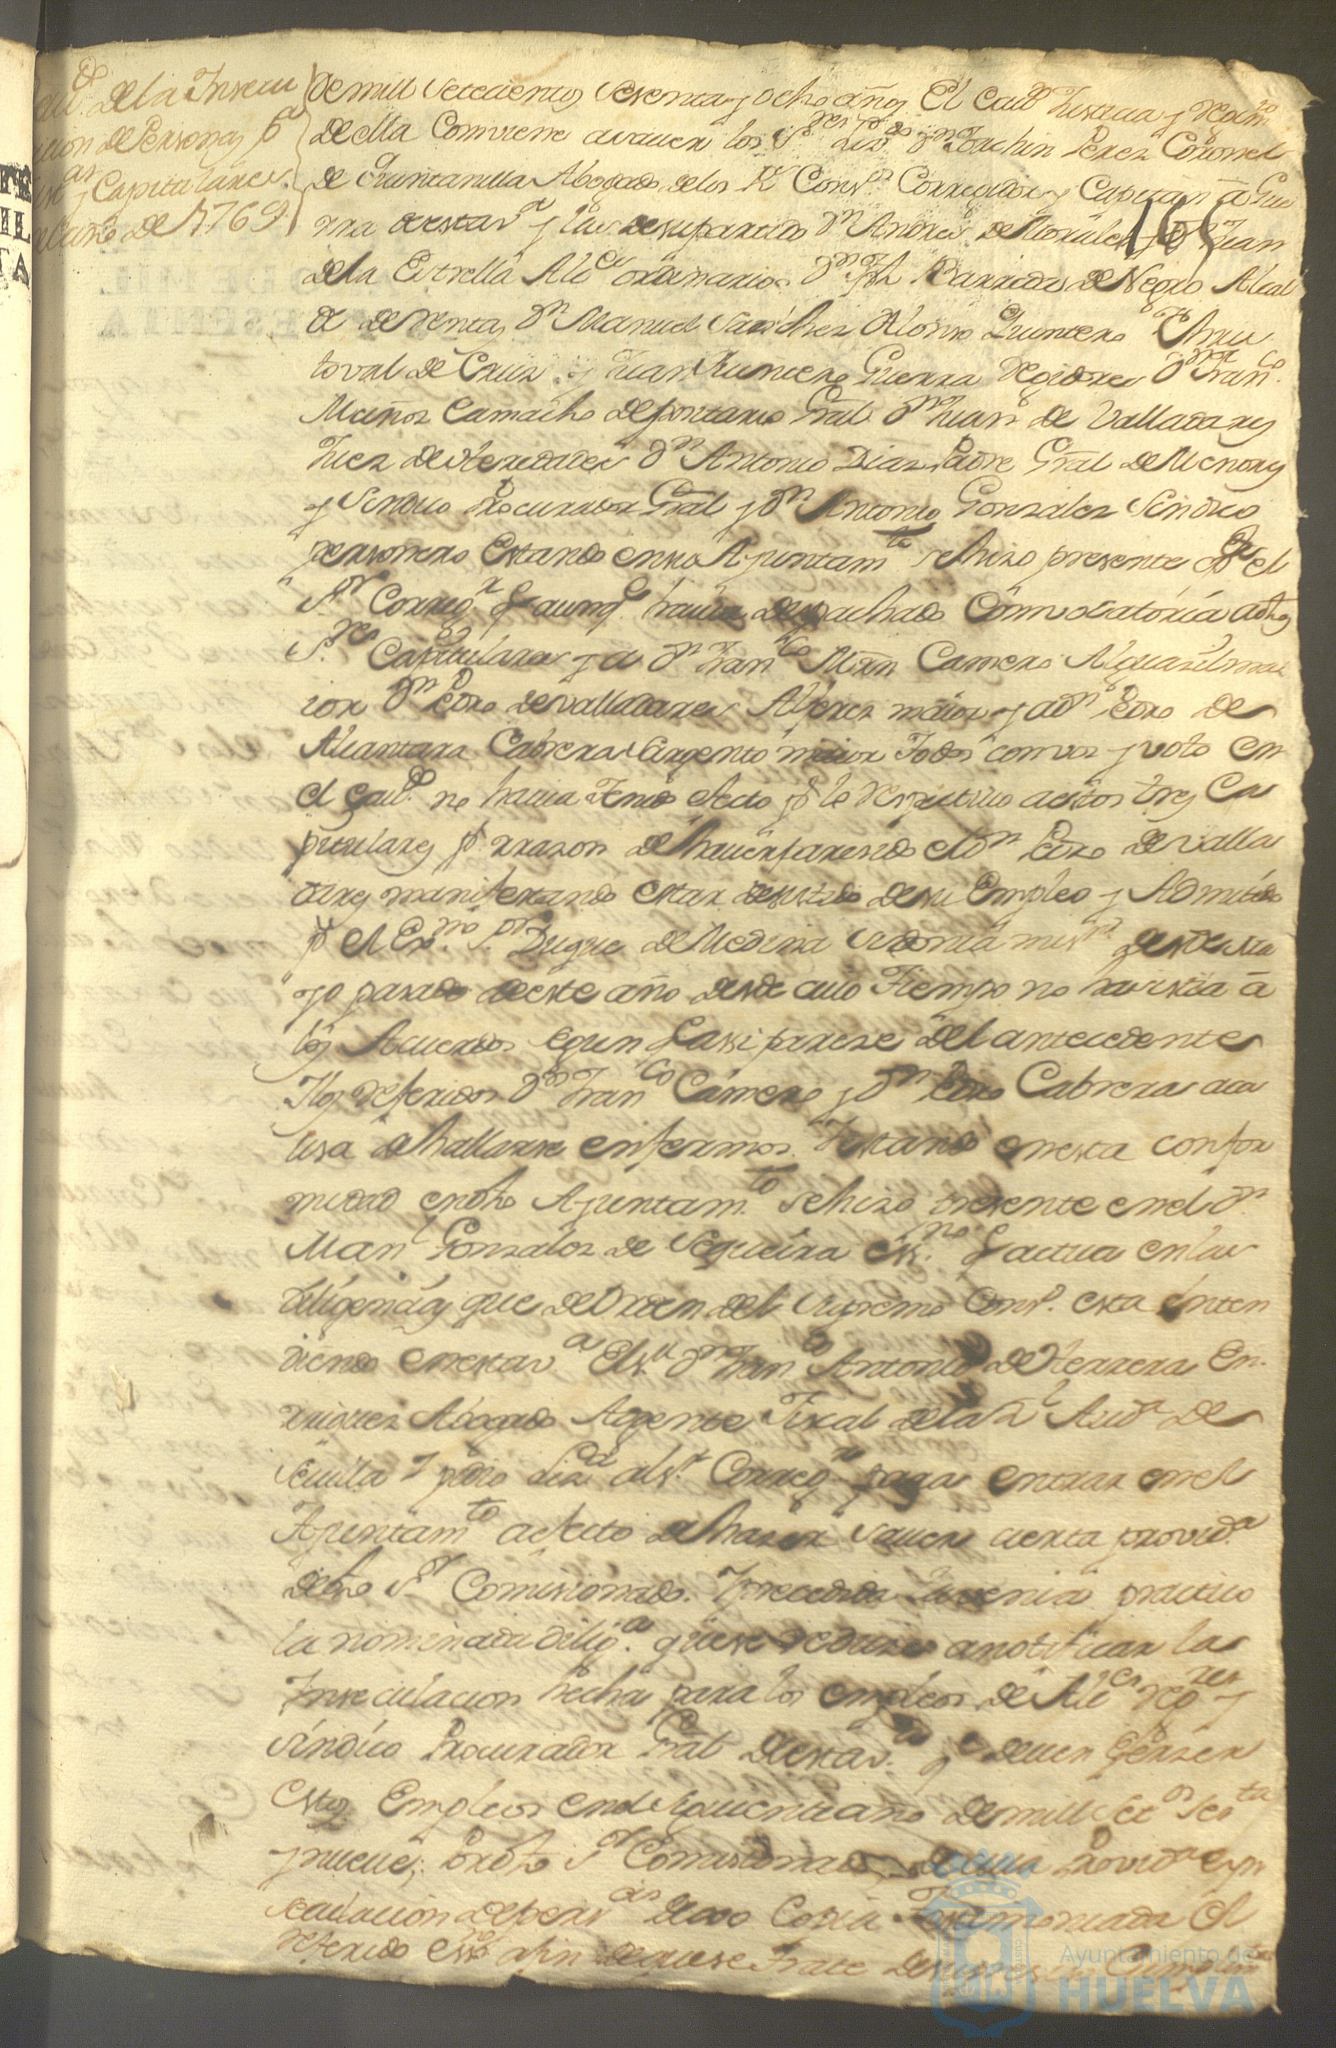 Caud.º de la Insecu
lacion de Personas p.ª
Capitulares
el año de 1769.
165
de mill setecientos sesenta y ocho años El Caud.º Justicia y Regim.to
de ella Conviene a saver los S.res Liz.do d.n Joachin Perez Coronel
de Quintanilla Abogado de los R.s Cons.s Corregidor y Capitan â Gue
rra de esta v.ª y las de su partido d.n Andres de Morales y d.n Juan
de la Estrella Alc.es ordinarios d.n Jph Barreda de Negro Alcal
de de Rentas d.n Manuel Sanchez Alonso Quintero Chris
toval de Cruz y Juan Quintero Guerra Regidores d.n Fran.co
Muñoz Camacho depositario Gral d.n Juan de Valladares
Juez de Heredades d.n Antonio Diaz Padre Gral de Menores
y Sindico Procurador Gral y d.n Antonio Gonzalez Sindico
Personero Estando en su Ayuntam.to se hizo presente p.r el
S.r Correg.r q aunq.e havia despachado Convocatoria a dhos
S.res Capitulares y a d.n Fran.co Mrn Camero Alguasil ma
ior d.n Pedro de Valladares Alferez maior y a d.n Pedro de
Alcantara Cabrera Sargento maior Todos con voz y voto en
el Caud.º no havia tenido efecto p.r lo respectivo a estos tres Ca
pitulares p.r rrazon de haver parecido el d.n Pedro de Valla
dares manifestando estar desistido de su Empleo y Admitido
p.r el Ex.mo S.or Duque de Medina Sidonia mi s.r desde
yo pasado de este año desde cuio Tiempo no havistia â
los Acuerdos segun q assi parese del antecedente
Y los referidos d.n Fran.co Camero y d.n Pedro Cabrera a ca
usa de hallarse enfermos. Y estando en esta confor
midad en dho Ayuntam.to se hizo presente en el d.n
Man.l Gonzalez de Sequeira ess.no q actua en las
diligencias que de Orden del Supremo Cons.º esta enten
diendo en esta v.ª El s.r d.n Fran.co Antonio de Herrera En
rriquez Abogado Agente Fiscal de la R.l Aud.ª de
Sevilla Y pidio Liz.ª al s.r Correg.r para entrar en el
Ayuntam.to a efecto de hazer saver cierta provid.ª
de dho S.r Comisionado. Y precedida su venia practico
la nominada dilig.ª que se reduze a notificar la
Inseculacion hecha para los empleos de Alc.es Reg.res y
sindico Procurador Gral de esta v.ª q.e deven Exerzer
estos Empleos en el siguiente año de mill set.os ses.ta
y nueve; Por dho S.r Comisionado de cuia Provid.ª e yn
seculacion de pers.as dexo Copia Testimoniada El
referido ess.no a fin de que se Trate de su Cumplim.to
Ayuntamiento de
HUELVA